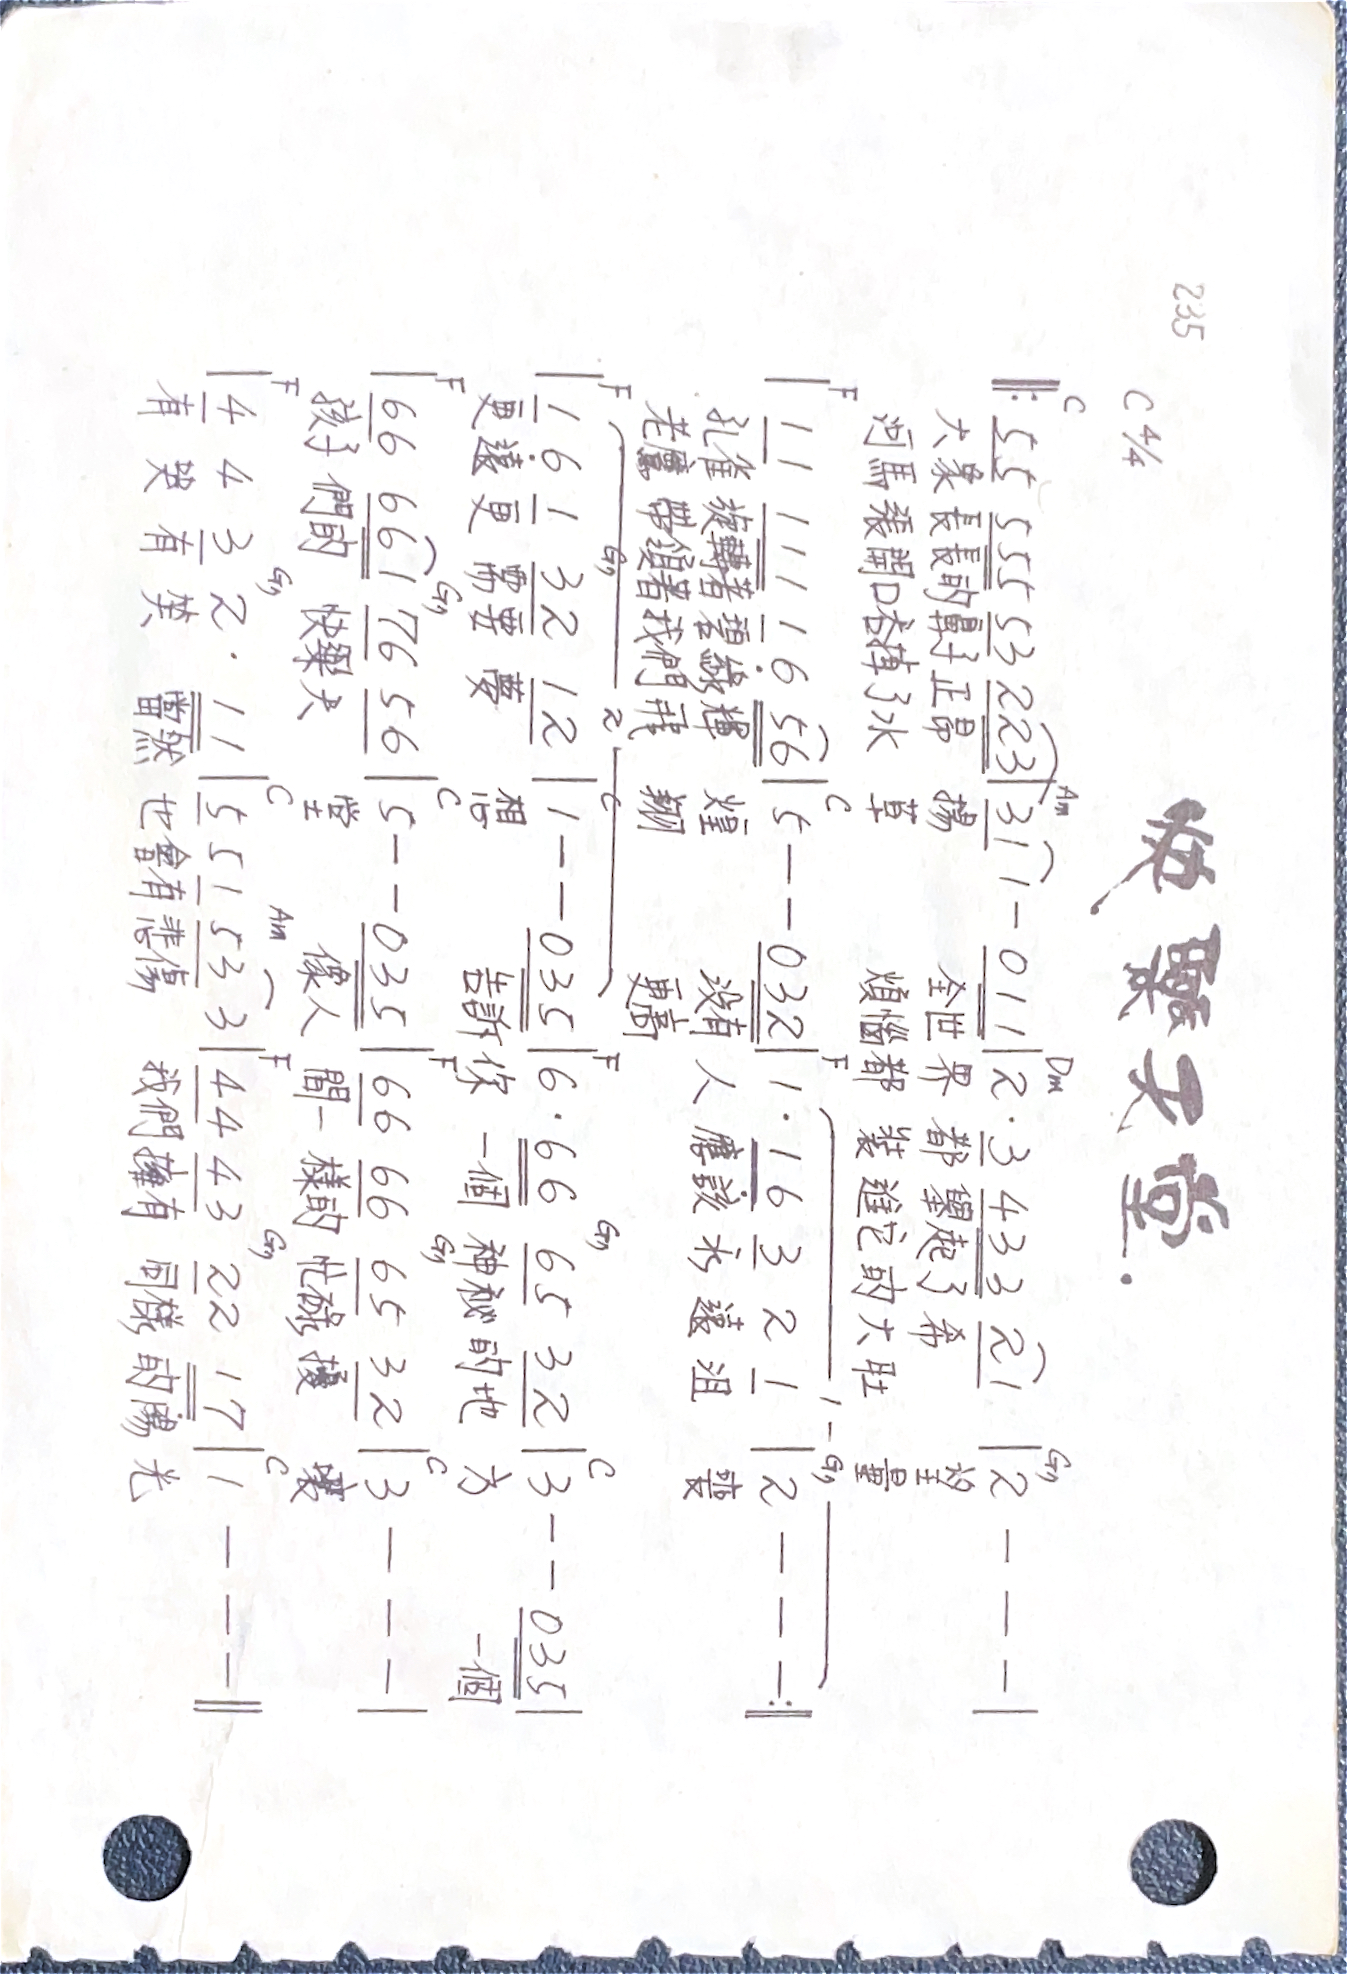 235
快樂天堂.
C 4/4
C Am Dm G7
‖: 55 555 53 223 | 31 1 – 011 | 2 · 3 433 21 | 2 – – – |
大象長長的鼻子正昂 揚 全世界 都舉起了希 望
河馬張開口吞掉了水 草 煩惱都 裝進它的大肚 量
F C F 1 G7
| 11 111 1 6 56 | 5 – – 032 | 1 · 16 3 2 1 | 2 – – – :‖
孔雀旋轉著碧綠輝 煌 没有 人 應該永遠沮 喪
老鷹帶領著我們飛 翔 更高
F G7 2 C F G7 C
| 1 6 1 32 12 | 1 – – 035 | 6 · 66 65 32 | 3 – – 035 |
更遠更 需要 夢 想 告訴 你 一個 神祕的地 方 一個
F G7 C F G7 C
| 66 661 76 56 | 5 – – 035 | 66 66 65 32 | 3 – – – |
孩子 們的 快樂天 堂 像人 間一 樣的 忙碌擾 壤
F G7 C Am F G7 C
| 4 4 3 2 · 11 | 5 5 1 53 3 | 44 43 22 17 | 1 – – – ‖
有 哭 有 笑 當然 也會有悲傷 我們擁有 同樣 的陽 光